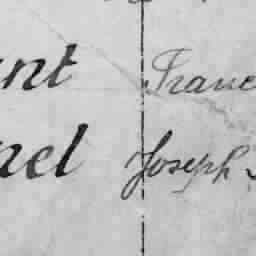 ant Franc
ael Joseph